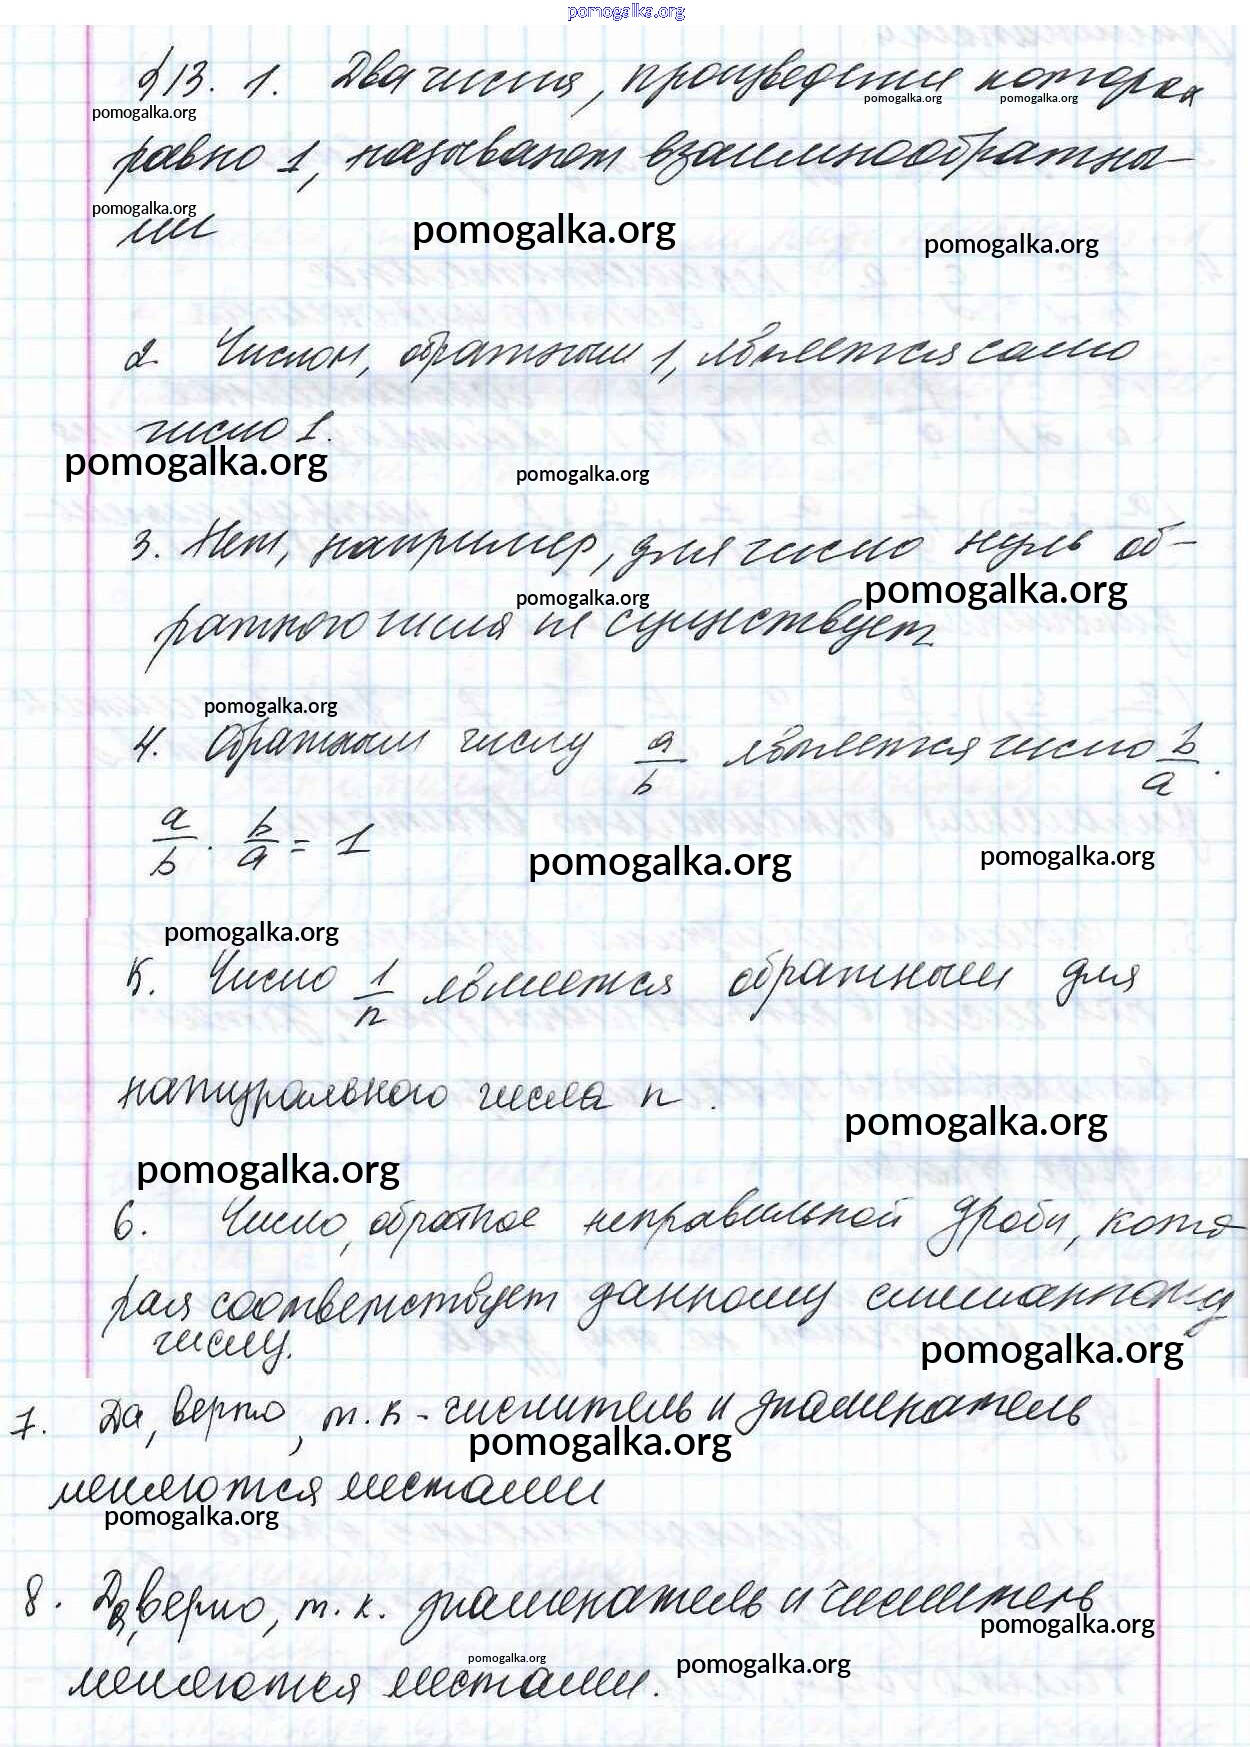 pomogalka.org
§13. 1. Два числа, произведение которых
pomogalka.org pomogalka.org pomogalka.org
равно 1, называют взаимнообратны-
pomogalka.org
ми
pomogalka.org
pomogalka.org
2. Числом, обратным 1, является само
число 1.
pomogalka.org
pomogalka.org
3. Нет, например, для число нуль об-
pomogalka.org
pomogalka.org
ратного числа не существует
pomogalka.org
4. Обратным числу a/b является число b/a.
a/b · b/a = 1
pomogalka.org
pomogalka.org
pomogalka.org
5. Число 1/n является обратным для
натурального числа n.
pomogalka.org
pomogalka.org
6. Число, обратное неправильной дроби, кото
рая соответствует данному смешанному
числу.
pomogalka.org
7. Да, верно, т.к. числитель и знаменатель
pomogalka.org
меняются местами
pomogalka.org
8. Да, верно, т.к. знаменатель и числитель
pomogalka.org
pomogalka.org
pomogalka.org
меняются местами.